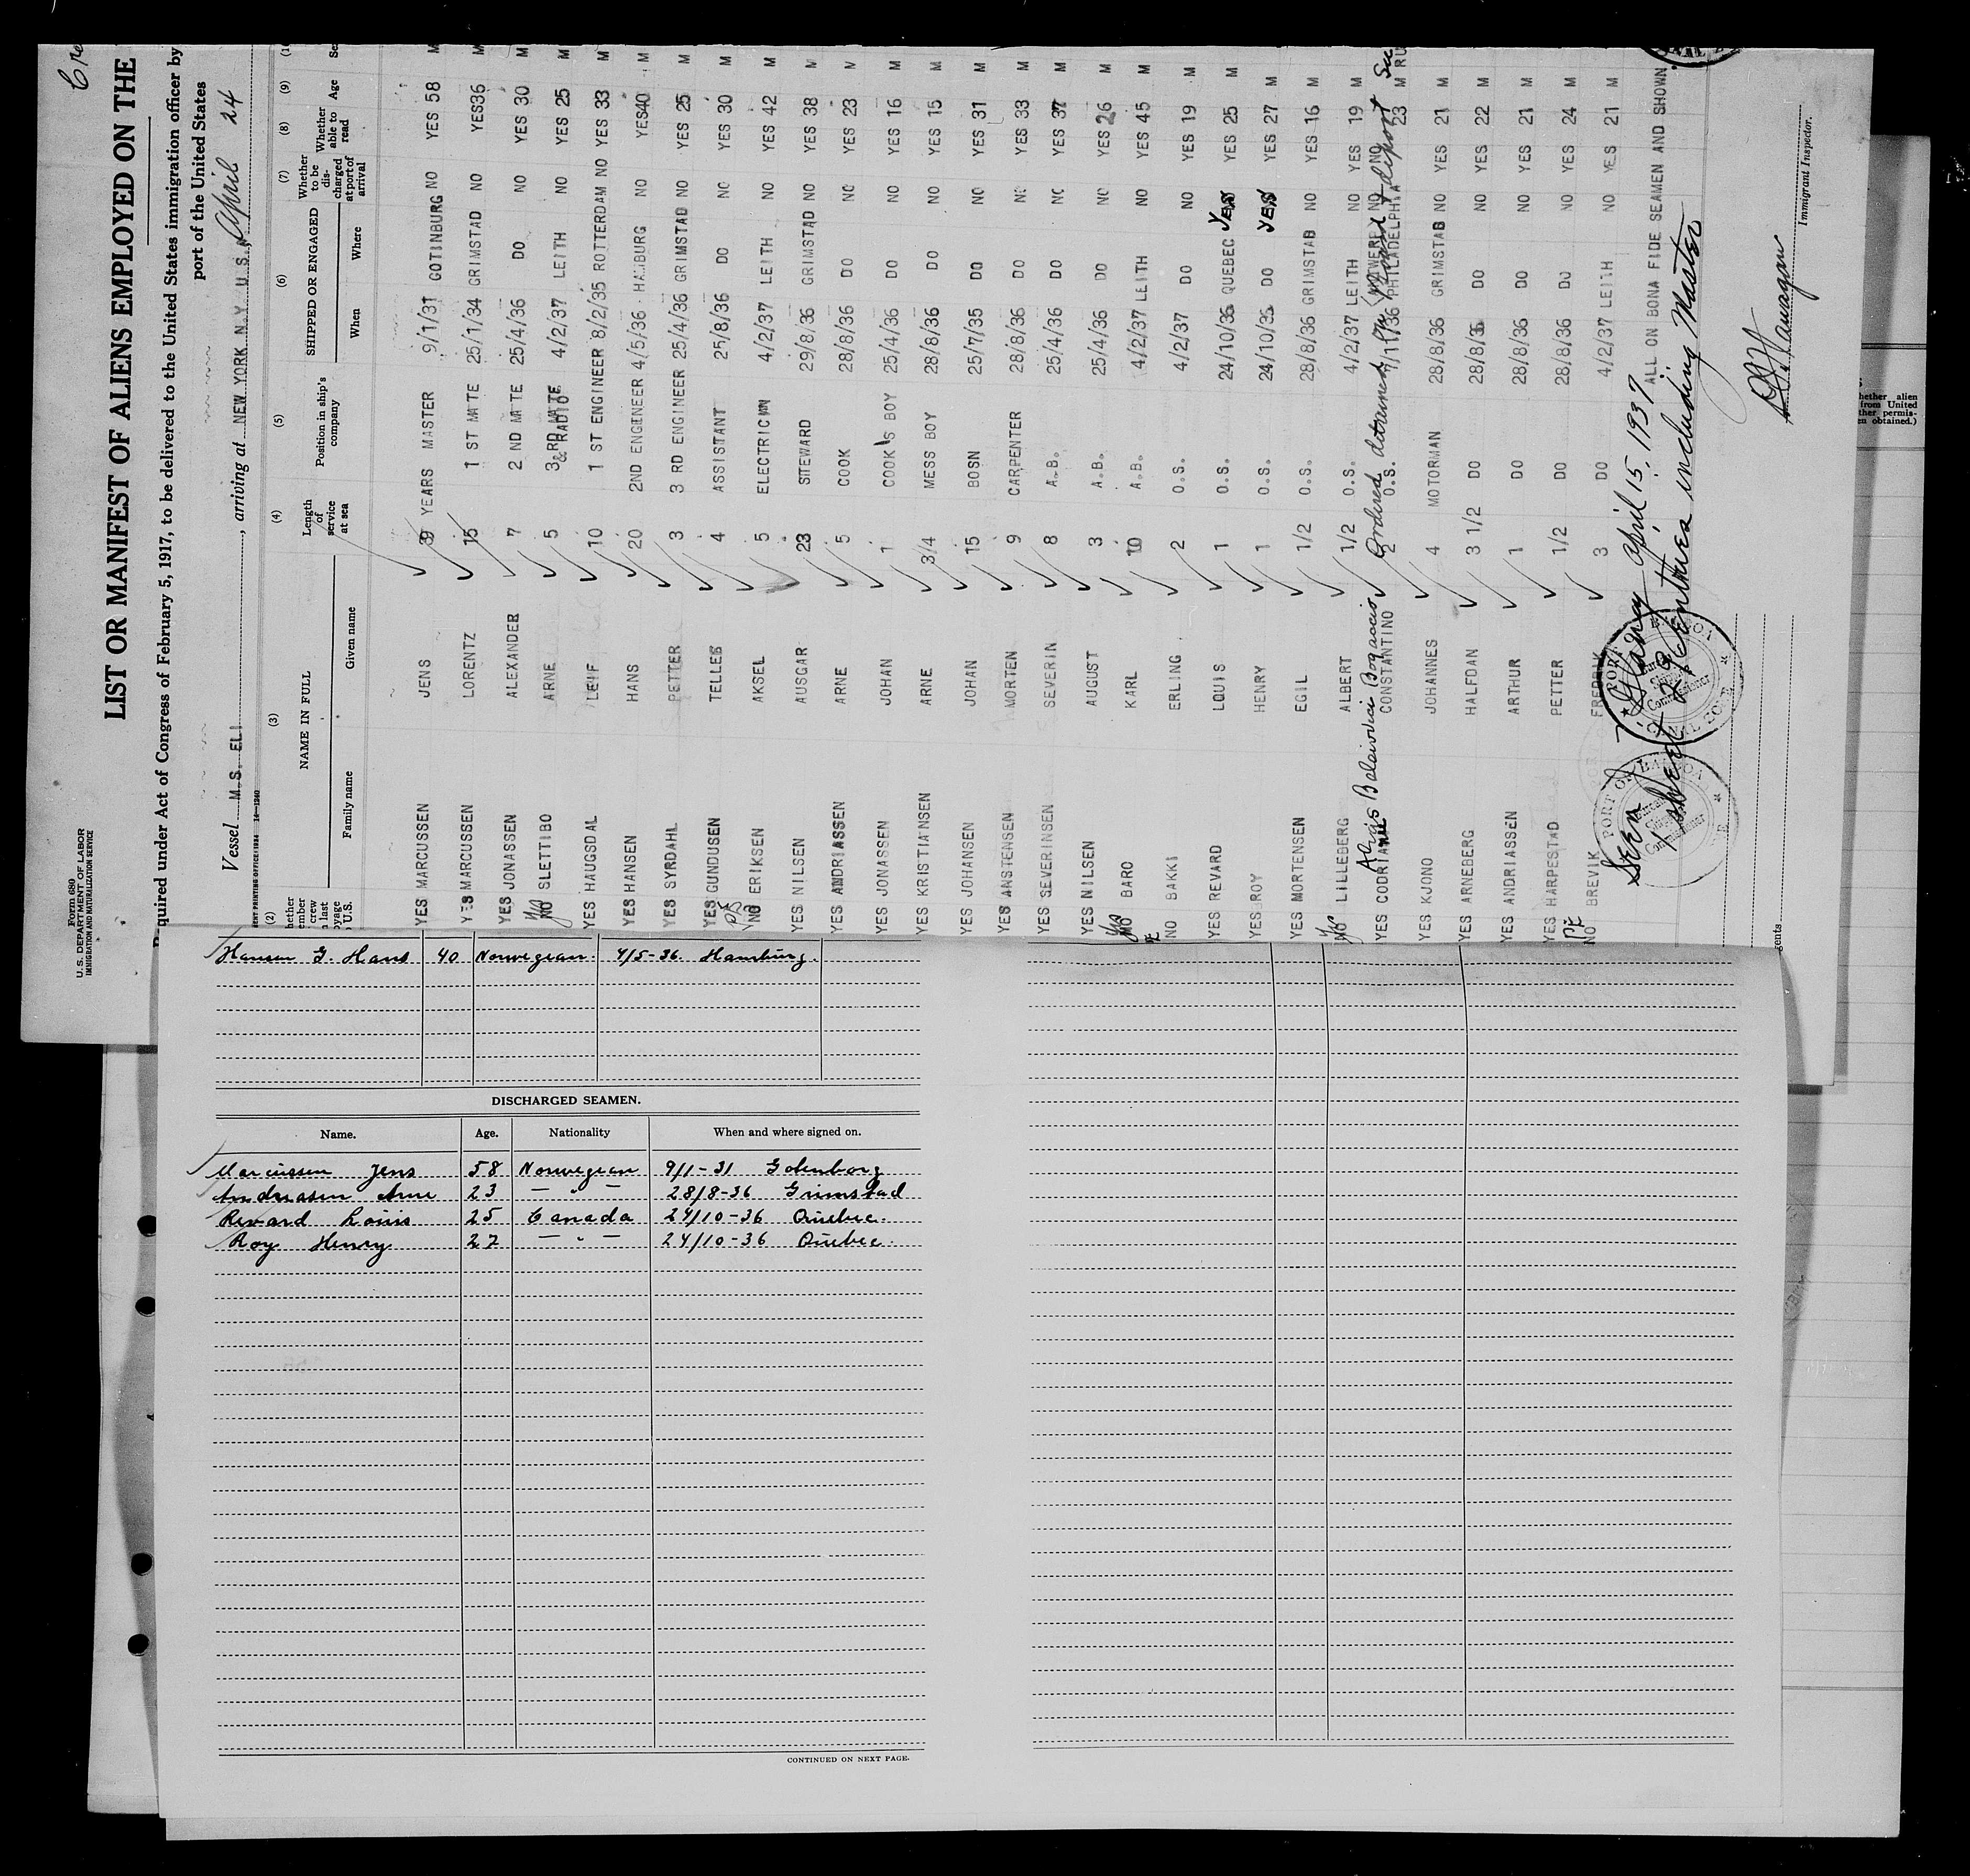 Form 680
U.S. DEPARTMENT OF LABOR
IMMIGRATION AND NATURALIZATION SERVICE
LIST OR MANIFEST OF ALIENS EMPLOYED ON THE
Required under Act of Congress of February 5, 1917, to be delivered to the United States immigration officer by
port of the United States
Vessel M.S. ELI, arriving at NEW YORK N.Y. U.S., April 24
(2) (3) (4) (5) (6) (7) (8) (9)
NAME IN FULL Length of service at sea Position in ship's company SHIPPED OR ENGAGED Whether to be discharged at port of arrival Whether able to read Age
Family name Given name When Where
YES MARCUSSEN JENS YEARS MASTER 9/1/31 GOTINBURG NO YES 58 M
YES MARCUSSEN LORENTZ 15 1 ST MATE 25/1/34 GRIMSTAD NO YES 36 M
YES JONASSEN ALEXANDER 7 2 ND MATE 25/4/36 DO NO YES 30 M
NO SLETTIBO ARNE 5 3 RD MATE & RADIO 4/2/37 LEITH NO YES 25 M
YES HAUGSDAL LEIF 10 1 ST ENGINEER 8/2/35 ROTTERDAM NO YES 33 M
YES HANSEN HANS 20 2ND ENGENEER 4/5/36 HAMBURG NO YES 40 M
YES SYRDAHL PETTER 3 3 RD ENGINEER 25/4/36 GRIMSTAD NO YES 25 M
YES GUNDUSEN TELLEB 4 ASSISTANT 25/8/36 DO NO YES 30 M
NO ERIKSEN AKSEL 5 ELECTRICIAN 4/2/37 LEITH NO YES 42 M
YES NILSEN AUSGAR 23 STEWARD 29/8/36 GRIMSTAD NO YES 38 M
YES ANDRIASSEN ARNE 5 COOK 28/8/36 DO NO YES 23 M
YES JONASSEN JOHAN 1 COOK'S BOY 25/4/36 DO NO YES 16 M
YES KRISTIANSEN ARNE 3/4 MESS BOY 28/8/36 DO NO YES 15 M
YES JOHANSEN JOHAN 15 BOSN 25/7/35 DO NO YES 31 M
YES ANSTENSEN MORTEN 9 CARPENTER 28/8/36 DO NO YES 33 M
YES SEVERINSEN SEVERIN 8 A.B. 25/4/36 DO NO YES 37 M
YES NILSEN AUGUST 3 A.B. 25/4/36 DO NO YES 26 M
NO BARO KARL 10 A.B. 4/2/37 LEITH NO YES 45 M
NO BAKKI ERLING 2 O.S. 4/2/37 DO NO YES 19 M
YES REVARD LOUIS 1 O.S. 24/10/36 QUEBEC YES YES 25 M
YES ROY HENRY 1 O.S. 24/10/36 DO YES YES 27 M
YES MORTENSEN EGIL 1/2 O.S. 28/8/36 GRIMSTAD NO YES 16 M
NO LILLEBERG ALBERT 1/2 O.S. 4/2/37 LEITH NO YES 19 M
Ordered detained on board & deport
YES CODRIAN CONSTANTINO 2 O.S. 7/11/36 PHILADELPHIA 23 M RU
YES KJONO JOHANNES 4 MOTORMAN 28/8/36 GRIMSTAD NO YES 21 M
YES ARNEBERG HALFDAN 3 1/2 DO 28/8/36 DO NO YES 22 M
YES ANDRIASSEN ARTHUR 1 DO 28/8/36 DO NO YES 21 M
YES HARPESTAD PETTER 1/2 DO 28/8/36 DO NO YES 24 M
NO BREVIK FREDRIK 3 DO 4/2/37 LEITH NO YES 21 M
ALL ON BONA FIDE SEAMEN AND SHOWN
Seen April 15, 1937
29 entries including Master
PORT OF BALBOA
PORT OF BALBOA
Immigrant Inspector.
Hansen G. Hans 40 Norwegian 4/5-36. Hamburg.
DISCHARGED SEAMEN.
Name. Age. Nationality When and where signed on.
Marcussen Jens 58 Norwegian 9/1-31 Gotenborg
Andreassen Arne 23 — " — 28/8-36 Grimstad
Revard Louis 25 Canada 24/10-36 Quebec.
Roy Henry 27 — " — 24/10-36 Quebec.
CONTINUED ON NEXT PAGE.